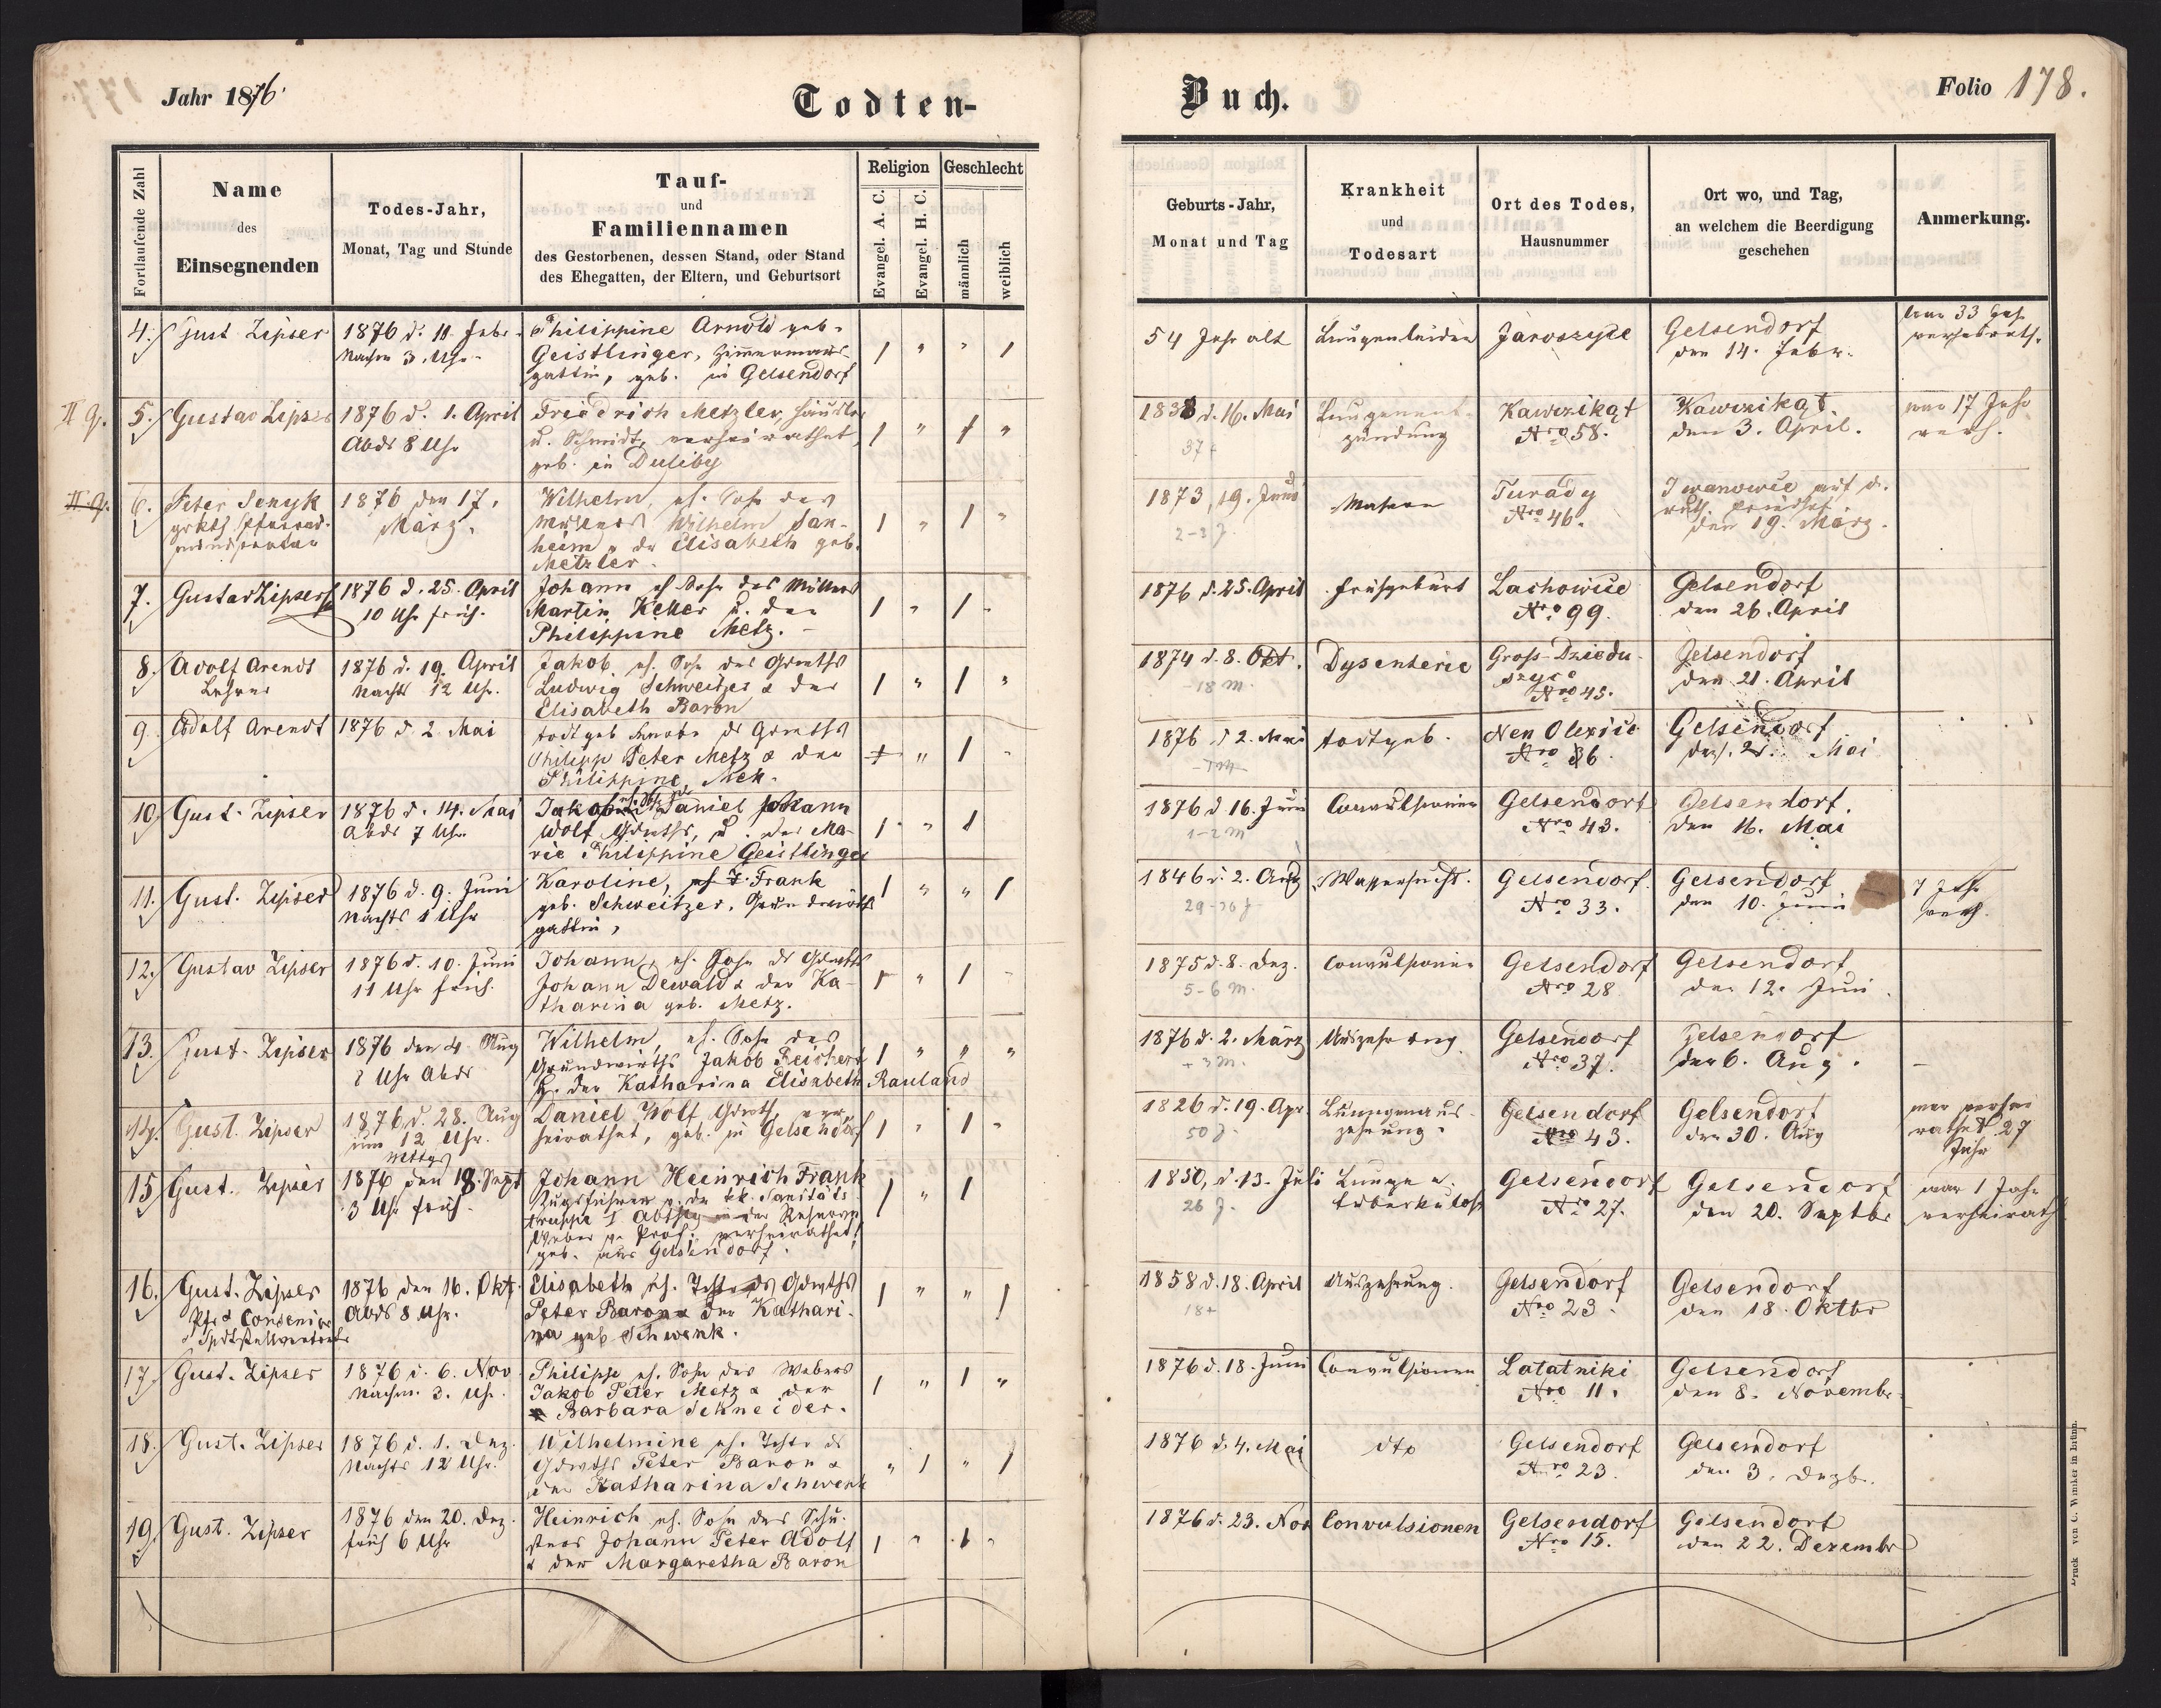 Jahr 1876.
Todten-
Buch.
Folio 178.
Fortlaufende Zahl
Name
des
Einsegnenden
Todes-Jahr,
Monat, Tag und Stunde
Tauf-
und
Familiennamen
des Gestorbenen, dessen Stand, oder Stand
des Ehegatten, der Eltern, und Geburtsort
Religion
Evangel. A. C.
Evangel. H. C.
Geschlecht
männlich
weiblich
Geburts-Jahr,
Monat und Tag
Krankheit
und
Todesart
Ort des Todes,
Hausnummer
Ort wo, und Tag,
an welchem die Beerdigung
geschehen
Anmerkung.
4.
Gust Zipser
1876 d. 11. Febr.
Nachm 3. Uhr
Philippine Arnold geb.
Geistlinger, Zimmermanns
gattin, geb. in Gelsendorf
54 Jahr alt
Lungenleiden
Jaroszyce
Gelsendorf
den 14. Febr.
war 33 Jah
verheirath.
II Q.
5.
Gustav Zipser
1876 d. 1. April
Abds 8 Uhr
Friedrich Metzler, Häusler
u. Schmidt, verheirathet,
geb. in Duliby
1838 d. 16. Mai
37+
Lungenent-
zündung
Kawczikąt
Nro 58.
Kawczikąt.
den 3. April.
war 17 Jahr
verh.
II. Q.
6.
Peter Senyk
grkth Pfarrad-
ministrator
1876 den 17.
März.
Wilhelm, eh. Sohn des
Müllers Wilhelm San-
heim u. der Elisabeth geb.
Metzler.
1873, 19. Juni
2-3 J.
Masern
Turady
Nro 46.
Iwanowce auf d.
ruth. Friedhof
den 19. März.
7.
Gustav Zipser
1876 d. 25. April
10 Uhr früh.
Johann eh Sohn des Müllers
Martin Keller u. der
Philippine Metz.
1876 d. 25. April
Frühgeburt
Lachowice
Nro 99.
Gelsendorf
den 26. April
8.
Adolf Arendt
Lehrer
1876 d. 19. April
Nachts 12 Uhr.
Jakob eh. Sohn des Grwths
Ludwig Schweitzer & der
Elisabeth Baron
1874 d. 8. Okt.
18 M.
Dysenterie
Gross-Dziedu-
szyce
Nro 45.
Gelsendorf
den 21. April
9.
Adolf Arendt
1876 d. 2. Mai
todtgeb Knabe ds Grwths
Philipp Peter Metz & der
Philippine
1876 d 2. Mai
todtgeb.
Neu Olexice
Nro 36.
Gelsendorf
Mai
10.
Gust. Zipser
1876 d. 14. Mai
Abds 7 Uhr
Jakob Daniel Johann
Wolf Gdwths, u. der Ma-
rie Philippine Geistlinger
1876 d 16.
1-2 M
Convulsionen
Gelsendorf
Nro 43.
Gelsendorf.
den 16. Mai
11.
Gust. Zipser
1876 d. 9. Juni
Nachts 1 Uhr
Karoline, Frank
geb. Schweitzer, Grundwirths
gattin,
1846 d. 2. Aug
29-30 J
Wassersucht.
Gelsendorf.
Nro 33.
Gelsendorf
den 10. Juni
7 Jahr
verh.
12.
Gustav Zipser
1876 d. 10. Juni
11 Uhr früh.
Johann, eh. Sohn ds Gdwths
Johann Dewald & der Ka-
tharina geb. Metz.
1875 d. 8. Dez.
5-6 M.
Convulsionen
Gelsendorf
Nro 28
Gelsendorf
den 12. Juni
13.
Gust. Zipser
1876 den 4. Aug
Uhr Abds
Wilhelm, eh. Sohn des
Grundwirths Jakob Reichert
u. der Katharina Elisabeth Rauland
1876 d. 2. März
+3 M.
Auszehrung
Gelsendorf
Nro 37.
Gelsendorf
den 6. Aug.
14.
Gust. Zipser
1876, d. 28. Aug
um 12 Uhr.
Mittgs
Daniel Wolf Gdwth, ver-
heirathet, geb. in Gelsendorf
1826 d. 19. Apr.
50 J.
Lungenaus-
zehrung.
Gelsendorf
Nro 43.
Gelsendorf
den 30. Aug
war verhei
rathet 27
Jahr
15.
Gust. Zipser
1876 den 18. Sept
3 Uhr früh.
Johann Heinrich Frank
Zugsführer v. der kk. Sanitäts
truppe 1 Abthg in der Reserve
Weber v. Prof. verheirathet,
geb. aus Gelsendorf.
1850, d. 13. Juli
26 J.
Lungen
tuberkulose
Gelsendorf
Nro 27.
Gelsendorf
den 20. Septbr
war 1 Jahr
verheirath
16.
Gust. Zipser
Pfr & Consenior
1876 den 16. Okt.
Abds 8 Uhr.
Elisabeth eh. Tchtr ds Gdwths
Peter Baron & der Kathari-
na geb Schwenk.
1858 d. 18. April
18+
Auszehrung.
Gelsendorf
Nro 23.
Gelsendorf
den 18. Oktbr
17.
Gust. Zipser
1876 d. 6. Nov
Nachm. 3. Uhr.
Philipp eh. Sohn des Webers
Jakob Peter Metz & der
Barbara Schneider.
1876 d. 18. Juni
Convulsionen
Latatniki
Nro 11.
Gelsendorf
den 8. Novembr.
18.
Gust. Zipser
1876 d. 1. Dez.
Nachts 12 Uhr.
Wilhelmine eh. Tchtr ds
Gdwths Peter Baron &
der Katharina Schwenk
1876 d. 4. Mai
dto
Gelsendorf
Nro 23.
Gelsendorf
den 3. Dezb.
19.
Gust. Zipser
1876 den 20. Dez.
früh 6 Uhr
Heinrich eh. Sohn des Schu-
sters Johann Peter Adolf
& der Margaretha Baron
1876 d. 23. Nov
Convulsionen
Gelsendorf
Nro 15.
Gelsendorf
den 22. Dezembr
Druck von C. Winiker in Brünn.